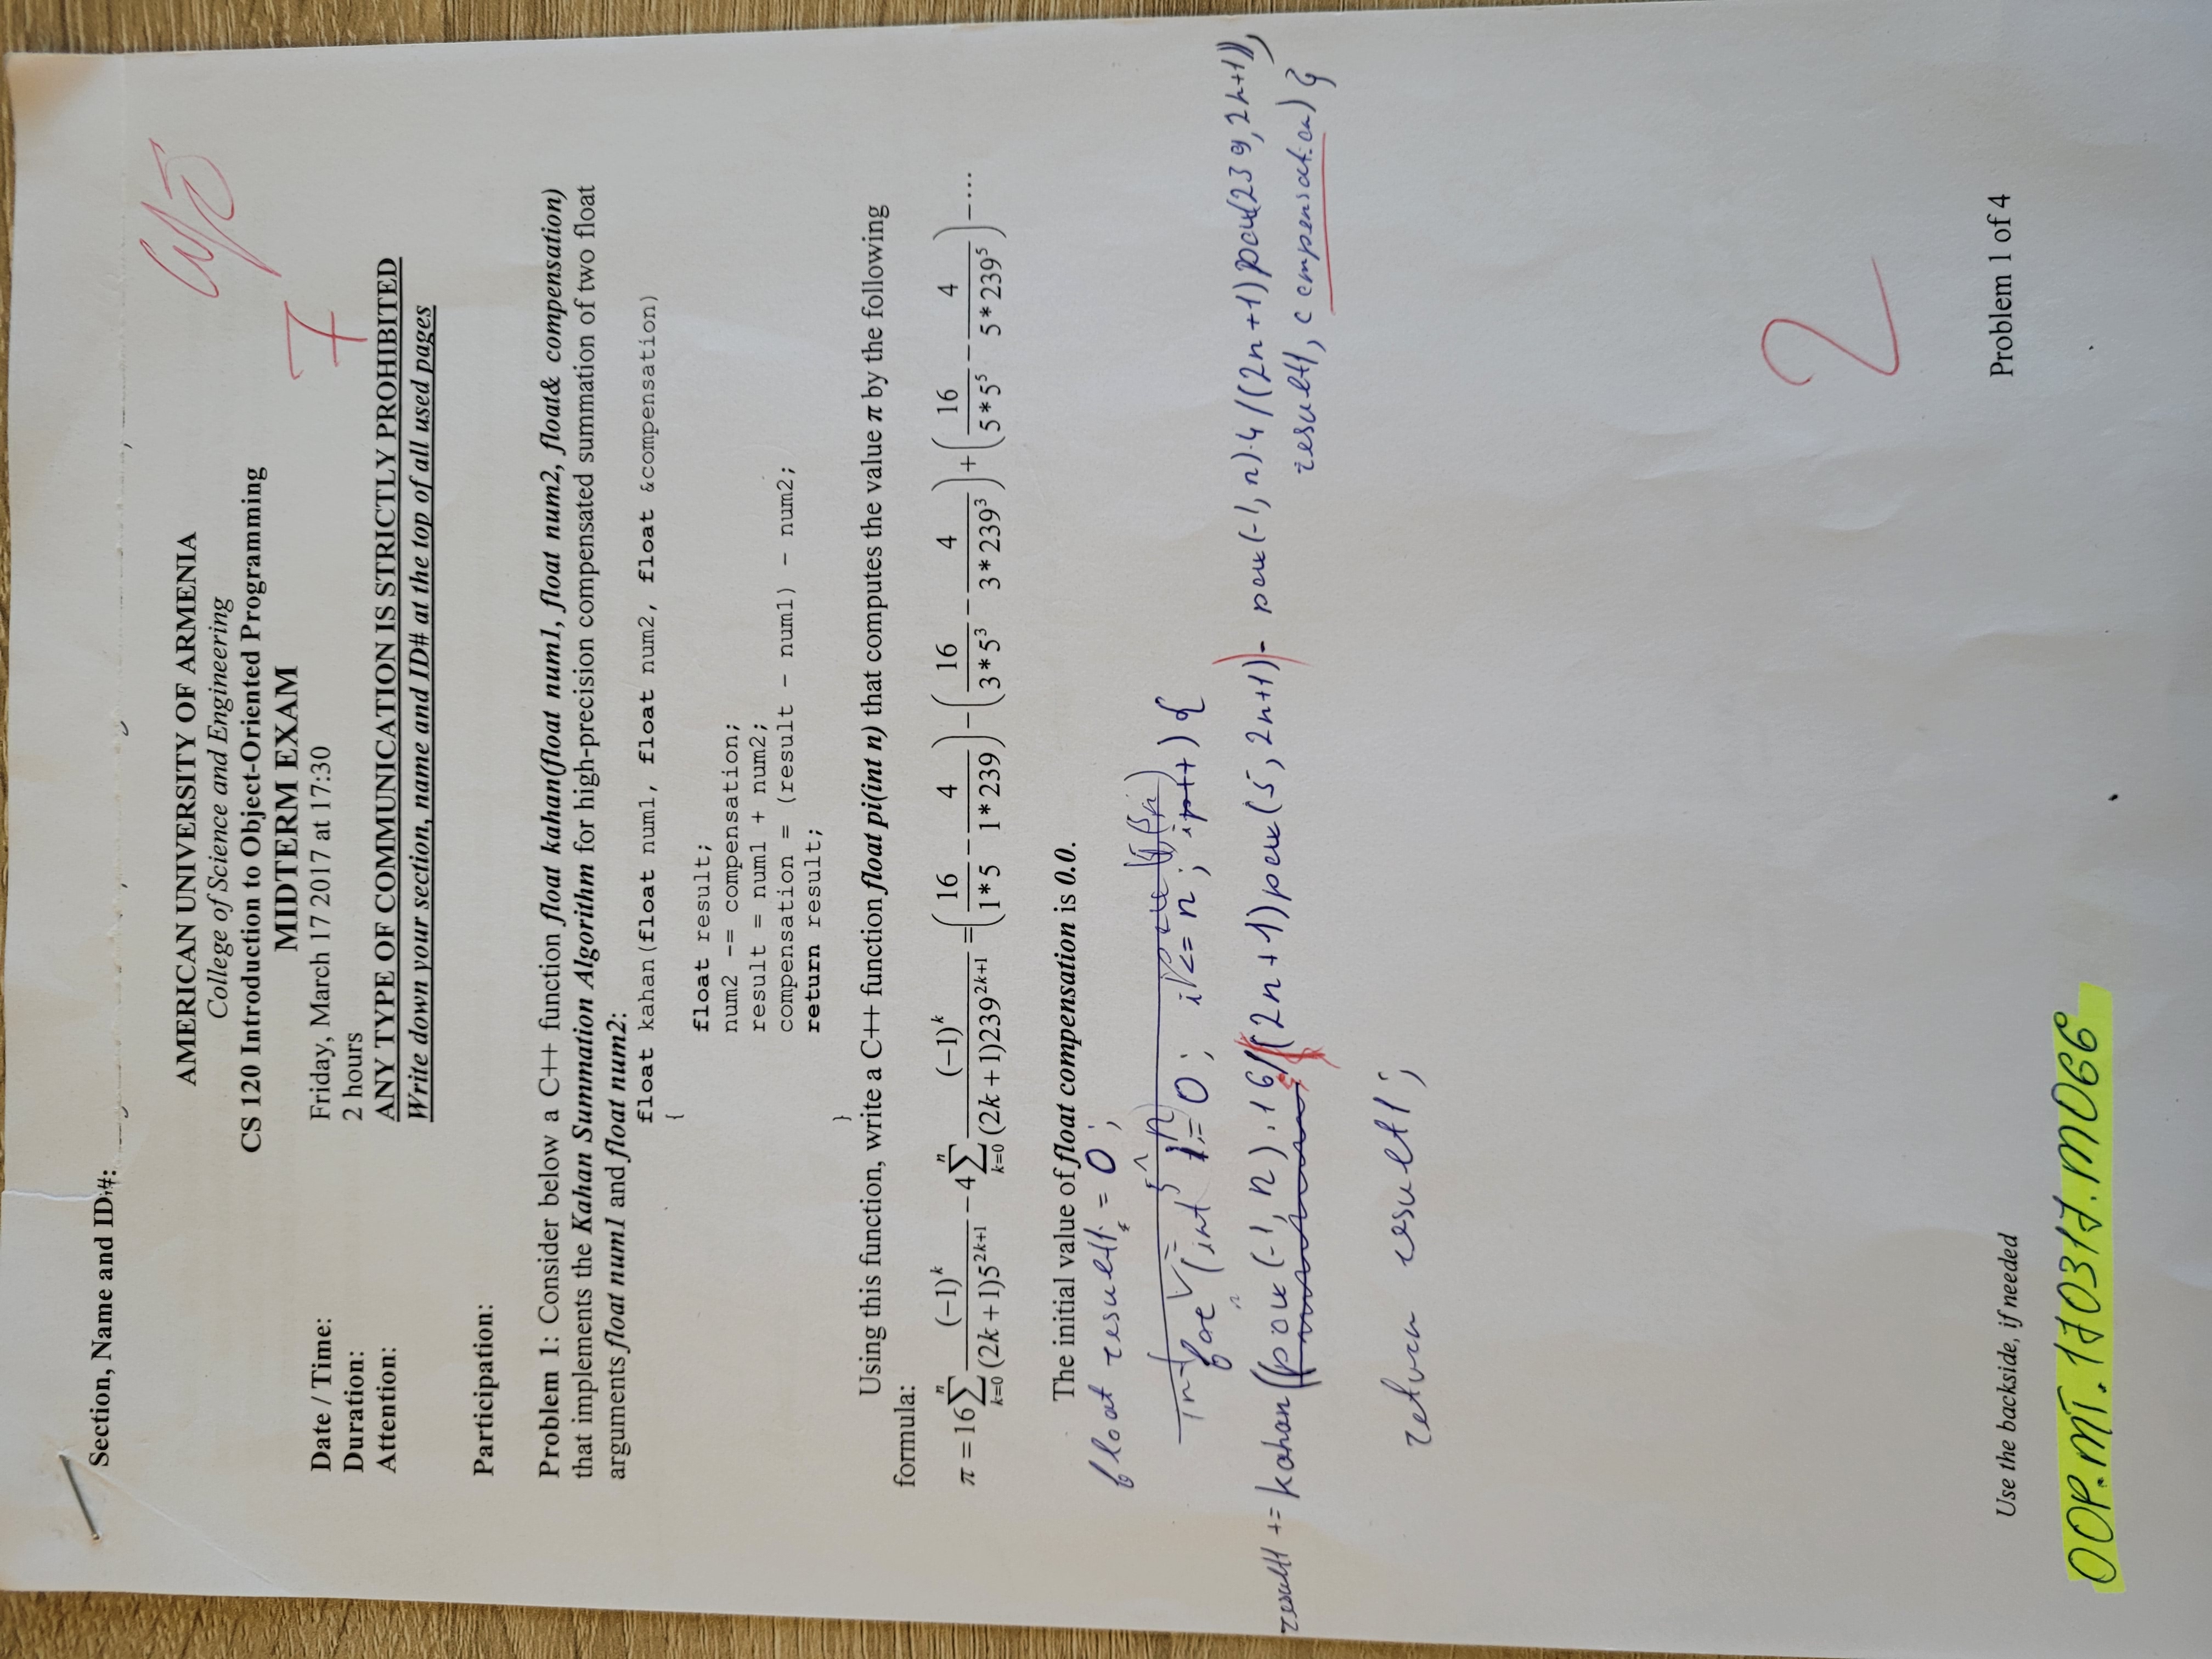 Section, Name and ID#:
AMERICAN UNIVERSITY OF ARMENIA
College of Science and Engineering
CS 120 Introduction to Object-Oriented Programming
MIDTERM EXAM
7
Date / Time: Friday, March 17 2017 at 17:30
Duration: 2 hours
Attention: ANY TYPE OF COMMUNICATION IS STRICTLY PROHIBITED
Write down your section, name and ID# at the top of all used pages
Participation:
Problem 1: Consider below a C++ function float kahan(float num1, float num2, float& compensation)
that implements the Kahan Summation Algorithm for high-precision compensated summation of two float
arguments float num1 and float num2:
float kahan(float num1, float num2, float &compensation)
{
float result;
num2 -= compensation;
result = num1 + num2;
compensation = (result - num1) - num2;
return result;
}
Using this function, write a C++ function float pi(int n) that computes the value π by the following
formula:
π = 16 ∑_{k=0}^{n} (−1)^k / ((2k+1)5^{2k+1}) − 4 ∑_{k=0}^{n} (−1)^k / ((2k+1)239^{2k+1}) = (16/(1*5) − 4/(1*239)) − (16/(3*5³) − 4/(3*239³)) + (16/(5*5⁵) − 4/(5*239⁵)) − ....
The initial value of float compensation is 0.0.
float result = 0;
for (int i=0; i<=n; i++) {
result += kahan((pow(-1, n)·16/((2n+1)pow(5, 2n+1)) - pow(-1, n)·4/((2n+1)pow(239, 2n+1)),
result, compensation) }
return result;
2
Use the backside, if needed Problem 1 of 4
OOP.MT.170317.M066